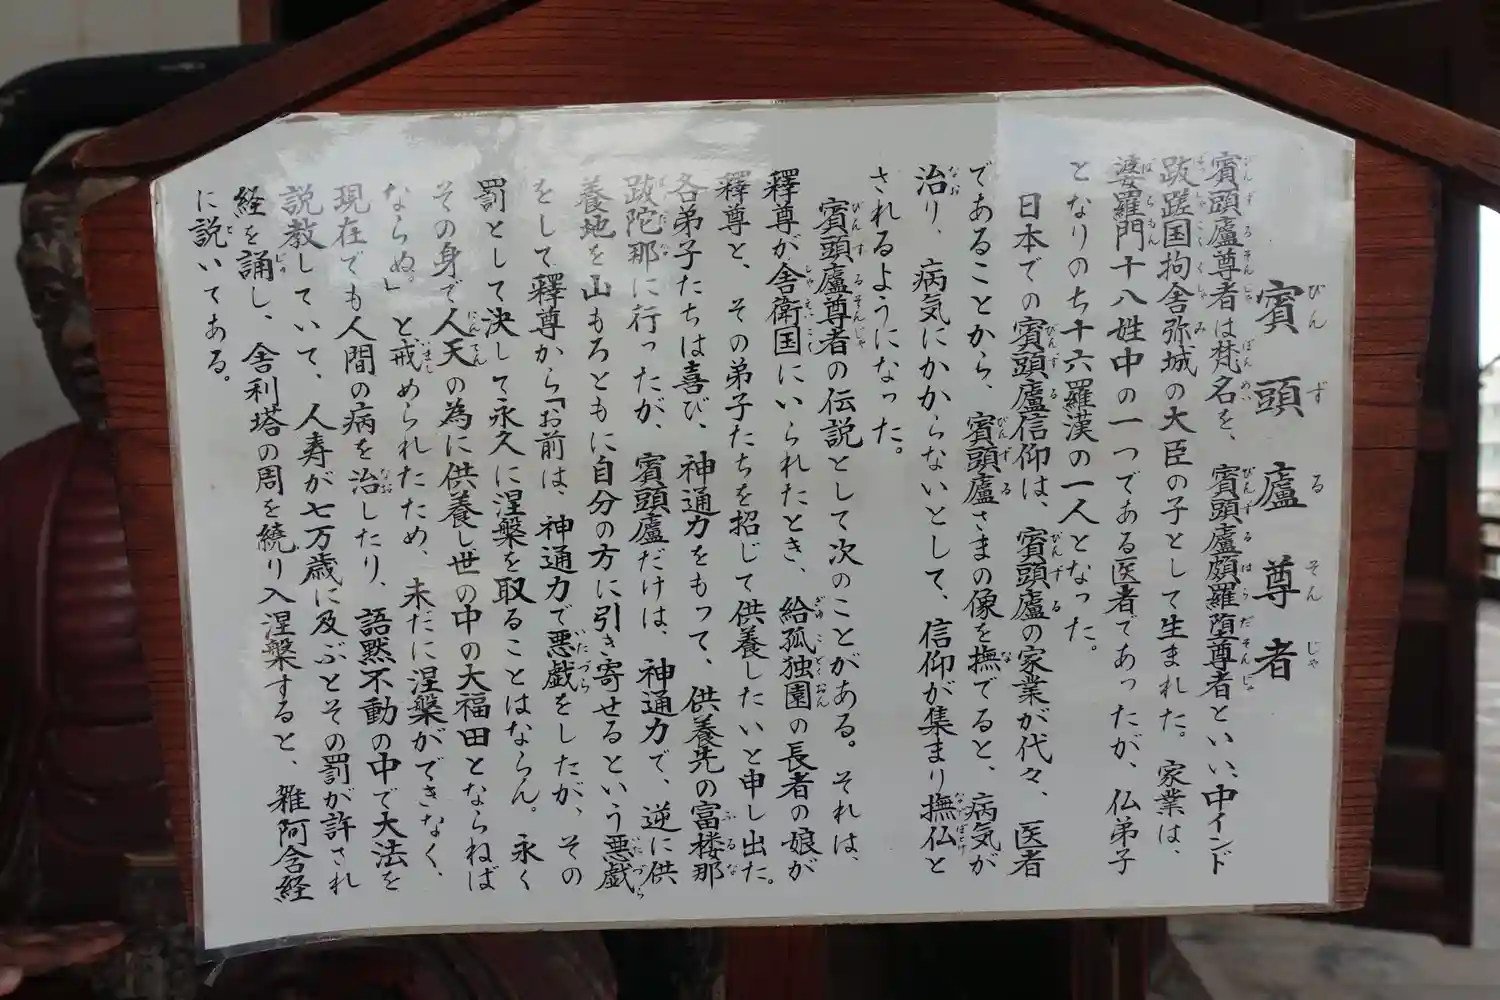 賓頭廬尊者
賓頭廬尊者は梵名を、賓頭廬頗羅堕尊者といい、中インド
跋蹉国拘舎弥城の大臣の子として生まれた。家業は、
婆羅門十八姓中の一つである医者であったが、仏弟子
となりのち十六羅漢の一人となった。
日本での賓頭廬信仰は、賓頭廬の家業が代々、医者
であることから、賓頭廬さまの像を撫でると、病気が
治り、病気にかからないとして、信仰が集まり撫仏と
されるようになった。
賓頭廬尊者の伝説として次のことがある。それは、
釋尊が舎衛国にいられたとき、給孤独園の長者の娘が
釋尊と、その弟子たちを招じて供養したいと申し出た。
各弟子たちは喜び、神通力をもって、供養先の富楼那
跋陀那に行ったが、賓頭廬だけは、神通力で、逆に供
養地を山もろともに自分の方に引き寄せるという悪戯
をして釋尊から「お前は、神通力で悪戯をしたが、その
罰として決して永久に涅槃を取ることはならん。永く
その身で人天の為に供養し世の中の大福田とならねば
ならぬ。」と戒められたため、未だに涅槃ができなく、
現在でも人間の病を治したり、語黙不動の中で大法を
説教していて、人寿が七万歳に及ぶとその罰が許され
経を誦し、舎利塔の周を繞り入涅槃すると、雑阿含経
に説いてある。